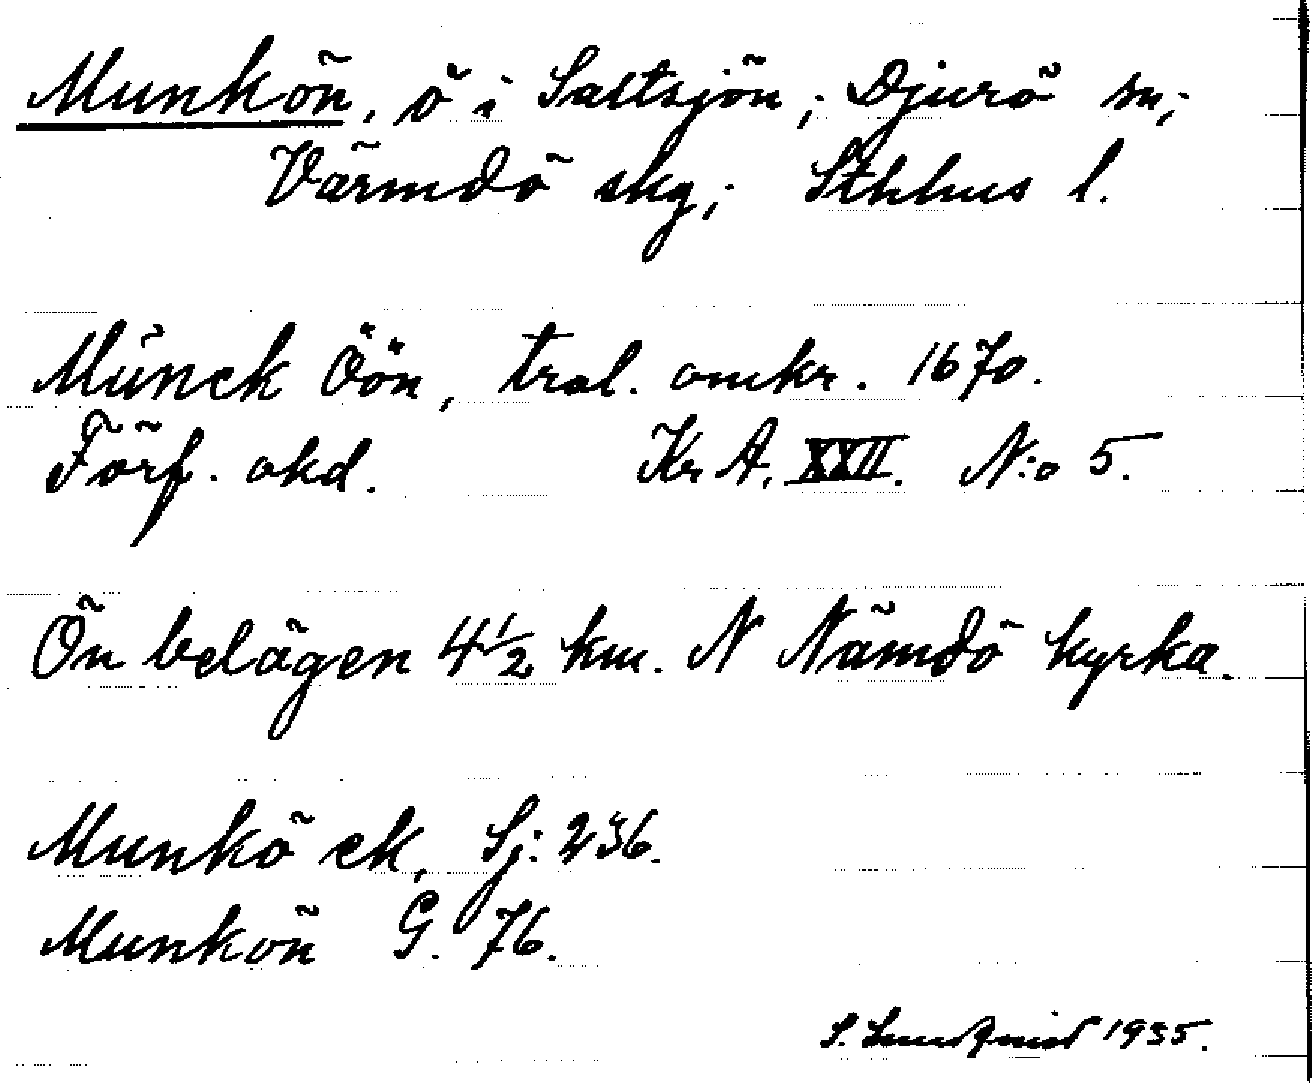 Munkön, ö i Saltsjön; Djurö sn;
Värmdö skg; Sthlms l.
Munck Öön, tral. omkr. 1670.
Förf. okd. Kr A. XXII. N:o 5.
Ön belägen 4 1/2 km. N Nämdö kyrka.
Munkö ek. Sj: 236.
Munkön G. 76.
S. Lundqvist 1935.